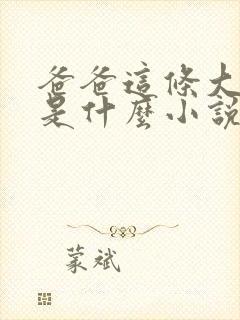 爸爸這條大
是什麼小說
蒙斌